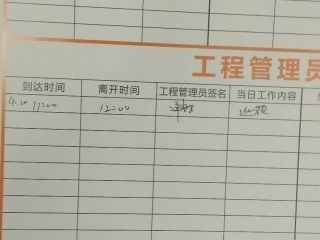 工程管理员
到达时间 离开时间 工程管理员签名 当日工作内容
4.10 11:00 12:00 巡检